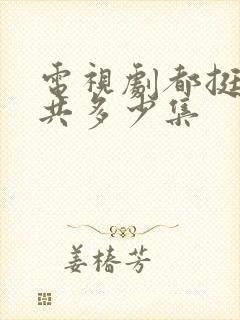 電視劇都挺
共多少集
姜椿芳